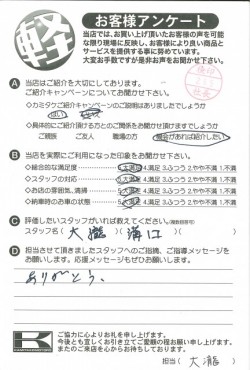 軽
お客様アンケート
当店では、お買い上げ頂いたお客様の声を可能
な限り現場に反映し、お客様により良い商品と
サービスを提供する事に努めています。
大変お手数ですが是非お声をお聞かせ下さい。
A 当店はご紹介を大切にしております。
ご紹介キャンペーンについてお聞かせ下さい。
◇カミタケご紹介キャンペーンのご説明はありましたでしょうか
はい いいえ
◇具体的にご紹介頂ける方とのご関係をお聞かせ頂けますでしょうか
ご親族 ご友人 職場の方 機会があれば紹介したい
B 当店を実際にご利用になられた印象をお聞かせ下さい。
◇総合的な満足度 5.大満足 4.満足 3.ふつう 2.やや不満 1.不満
◇スタッフの対応 5.大満足 4.満足 3.ふつう 2.やや不満 1.不満
◇お店の雰囲気、清掃 5.大満足 4.満足 3.ふつう 2.やや不満 1.不満
◇納車時のお車の状態 5.大満足 4.満足 3.ふつう 2.やや不満 1.不満
C 評価したいスタッフがいれば教えてください。(複数回答可)
スタッフ名( 大瀧 溝口 )
D 担当させて頂きましたスタッフへのご指摘、ご指導メッセージを
お願いします。応援メッセージもぜひお願いします。
ありがとう。
ご協力に心よりお礼を申し上げます。
今後とも宜しくお引き立てご愛顧の程お願い申し上げます。
またのご来店を心からお待ちしております。
担当( 大瀧 )